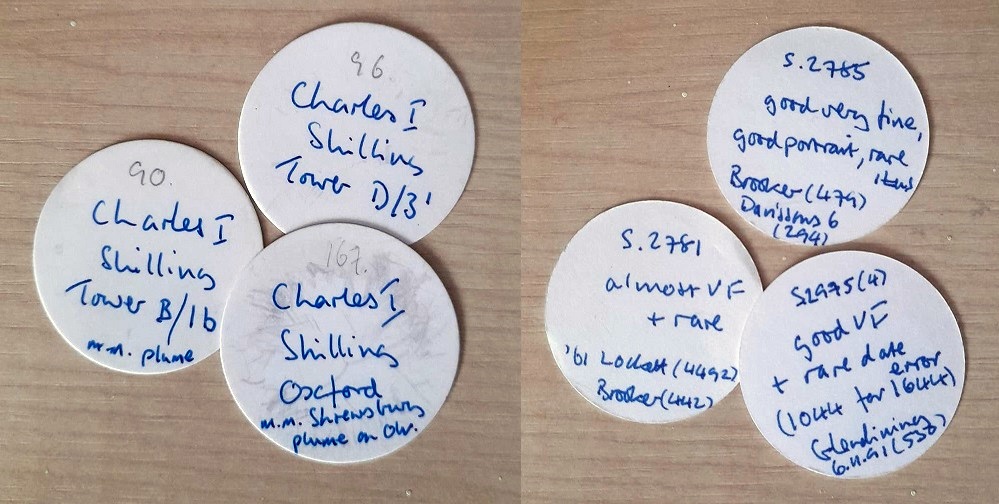 96.
Charles I
Shilling
Tower D/3'
90.
Charles I
Shilling
Tower B/1b
m.m. plume
167.
Charles I
Shilling
Oxford
m.m. Shrewsbury
plume on Obv.
S.2785
good very fine,
good portrait, rare
Brooker (479)
Davissons 6
(294)
S.2781
almost VF
+ rare
'61 Lockett (4492)
Brooker (442)
S2975(4)
good VF
+ rare date
error
(1044 for 1644)
Glendining
6.11.91 (538)